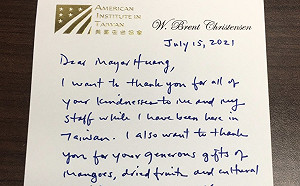 AMERICAN
INSTITUTE IN
TAIWAN
美國在台協會
W. Brent Christensen
July 15, 2021
Dear Mayor Huang,
I want to thank you for all of
your kindnesses to me and my
staff while I have been here in
Taiwan. I also want to thank
you for your generous gifts of
mangoes, dried fruits and cultural